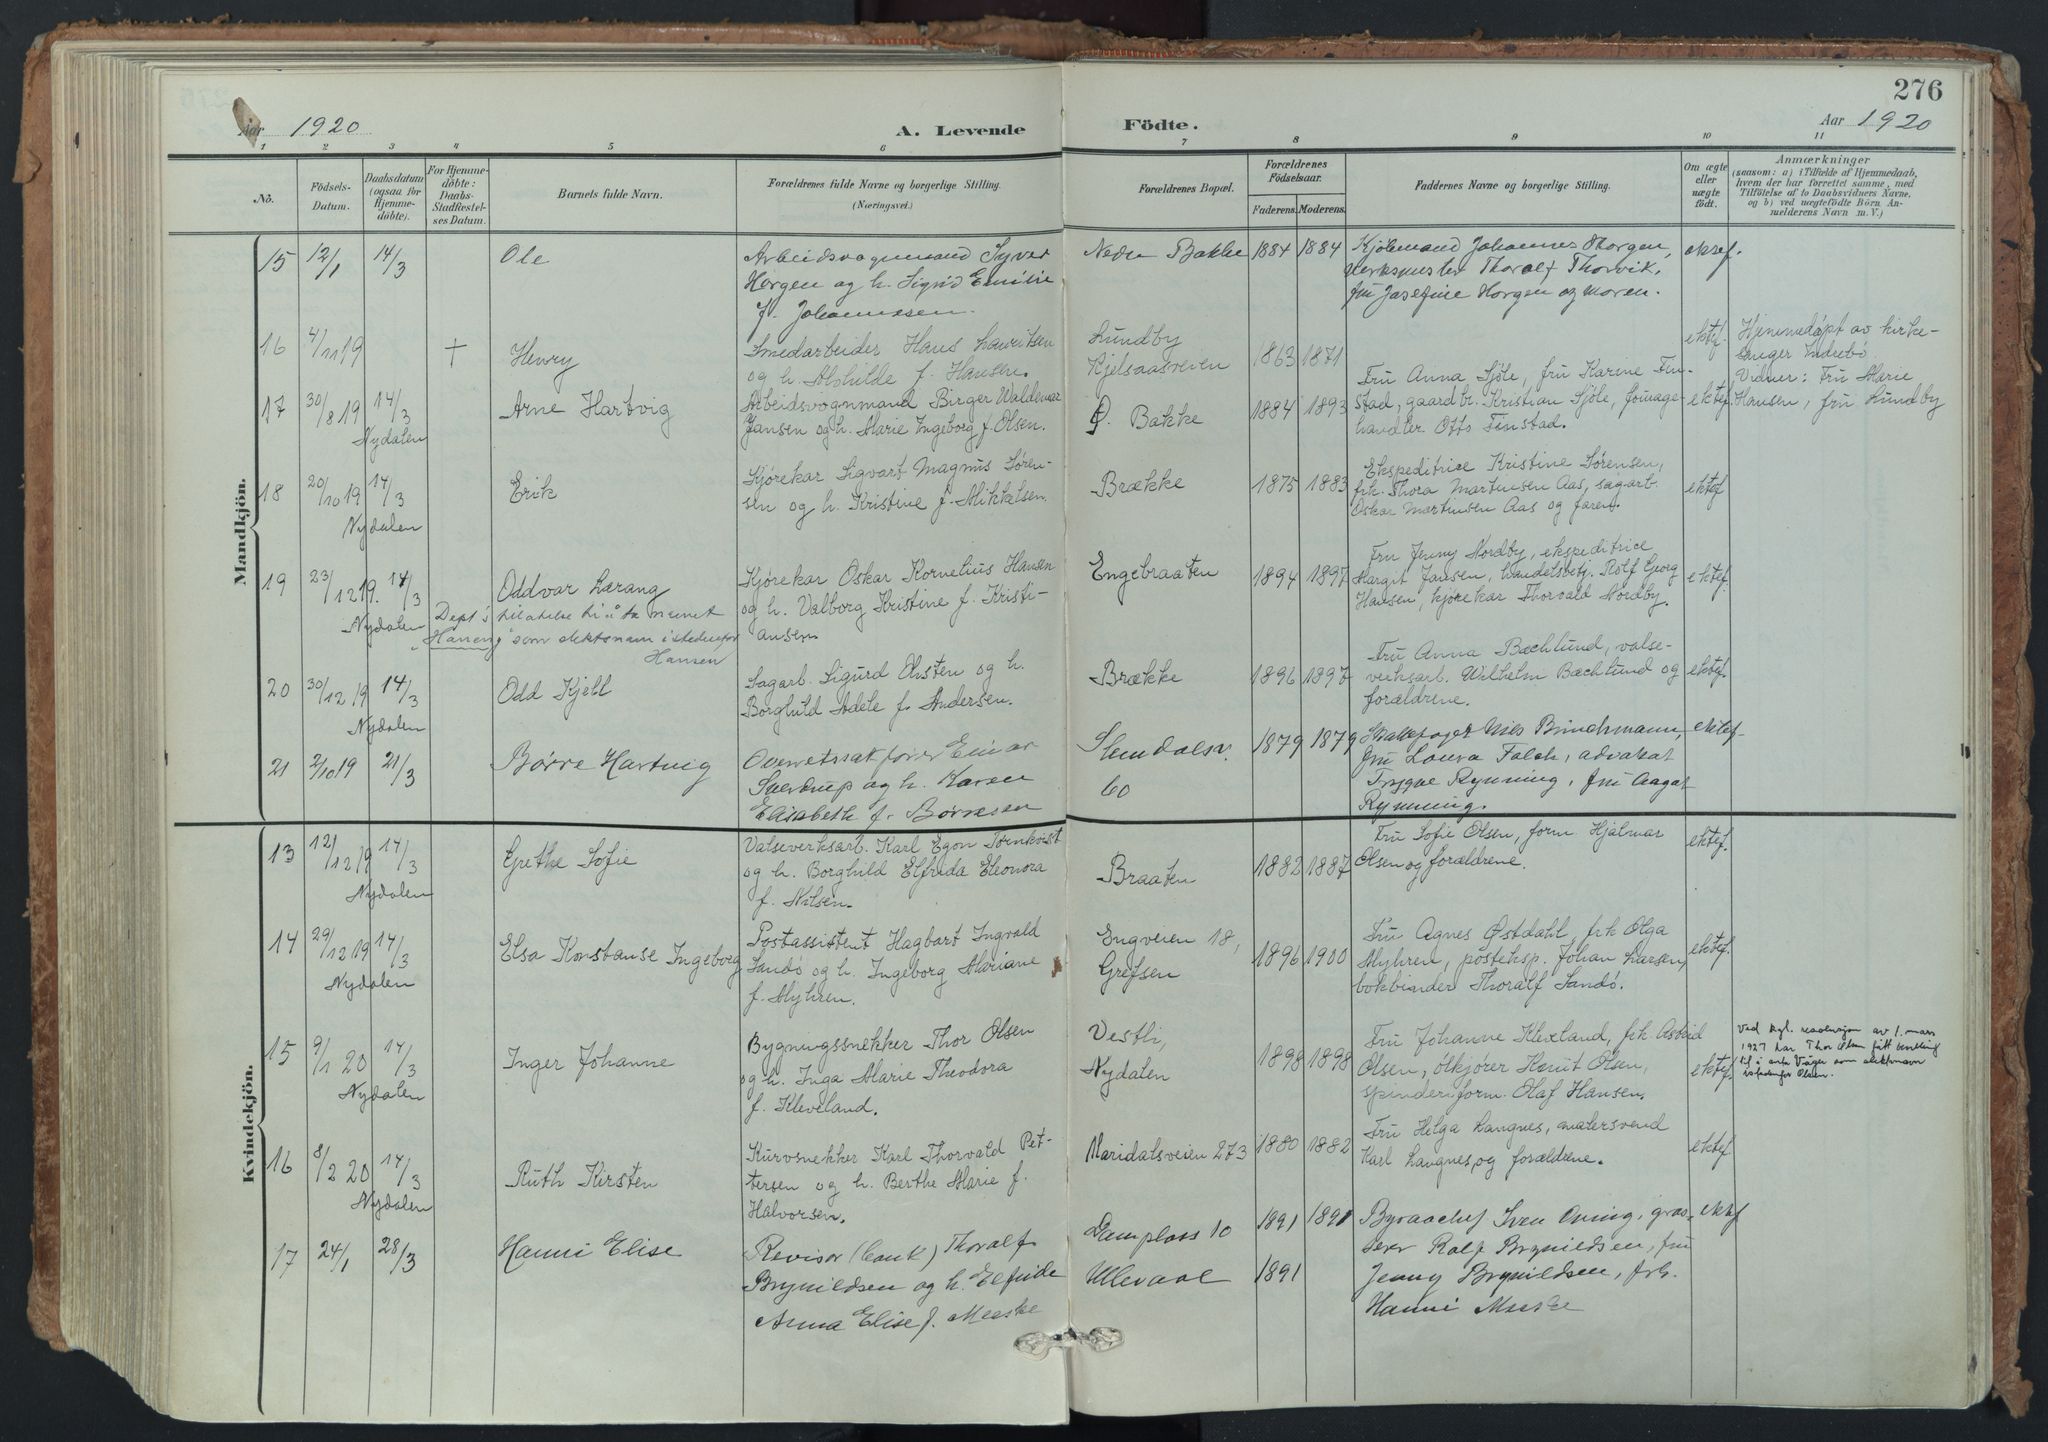 276
Aar 1920
A. Levende
Födte.
Aar 1920
1 2 3 4 5 6 7 8 9 10 11
No.
Födsels-
Datum.
Daabsdatum
(ogsaa for
Hjemme-
döbte).
For Hjemme-
döbte:
Daabs-
Stadfæstel-
ses Datum.
Barnets fulde Navn.
Forældrenes fulde Navne og borgerlige Stilling.
(Næringsvei.)
Forældrenes Bopæl.
Forældrenes
Födselsaar.
Faderens. Moderens.
Faddernes Navne og borgerlige Stilling.
Om ægte
eller
uægte
født.
Anmærkninger
(saasom: a) i Tilfælde af Hjemmedaab,
hvem der har forrettet samme, med
Tilföielse af to Daabsvidners Navne,
og b) ved uægtefödte Börn An-
melderens Navn m. V.)
Mandkjön.
15 12/1 14/3 Ole
Arbeidsvognmand Syver
Horgen og h. Sigrid Emilie
f. Johannessen.
Nedre Bakke 1884 1884
Kjøbmand Johannes Horgen,
verksmester Thoralf Thorvik,
fru Josefine Horgen og moren.
ektef.
16 4/11 19 + Henry
Smedarbeider Hans Lauritsen
og h. Alshilde f. Hansen.
Lundby
Kjelsaasveien 1863 1871
ektef.
Hjemmedøpt av kirke-
sanger Indrebö.
Vidner: Fru Marie
Hansen, fru Lundby
17 30/8 19 14/3
Nydalen
Arne Hartvig
Arbeidsvognmand Birger Waldemar
Jansen og h. Marie Ingeborg f. Olsen.
Ø. Bakke 1884 1893
Fru Anna Sjöle, fru Karene Fin-
stad, gaardbr. Kristian Sjöle, fourage-
handler Otto Finstad.
ektef.
18 20/10 19 14/3
Nydalen
Erik
Kjörekar Sigvart Magnus Sören-
sen og h. Kristine f. Mikkelsen.
Brække 1875 1883
Ekspeditrice Kristine Sørensen,
frk. Thora Martinsen Aas, sagarb.
Oskar Martinsen Aas og faren.
ektef.
19 23/12 19. 14/3
Nydalen
Oddvar Lærang
Dept's tilatelse til å ta navnet
"Hareng" som slektsnavn istedenfor
Hansen
Kjørekar Oskar Kornelius Hansen
og h. Valborg Kristine f. Kristi-
ansen.
Engebraaten 1894 1897
Fru Jenny Nordby, ekspeditrice
Margit Jansen, handelsbetj. Rolf Georg
Hansen, kjørekar Thorvald Nordby.
ektef.
20 30/12 19 14/3
Nydalen
Odd Kjell
Sagarb. Sigurd Olsten og h.
Borghild Adele f. Andersen.
Brække 1896 1897
Fru Anna Bæchlund, valse-
verksarb. Wilhelm Bæchlund og
forældrene.
ektef.
21 2/10 19 21/3 Børre Hartvig
Overretssakfører Einar
Sverdrup og h. Karen
Elisabeth f. Børresen
Slemdalsv.
60 1879 1879
Nils Brinchmann,
fru Laura Falch, advokat
Trygve Rynning, fru Aagot
Rynning.
ektef.
Kvindekjön.
13 12/12 19 14/3
Nydalen
Grethe Sofie
Valseverksarb. Karl Egon Törnkvist
og h. Borghild Elfrida Eleonora
f. Nilsen.
Braaten 1882 1887
Fru Sofie Olsen, form. Hjalmar
Olsen og forældrene.
ektef.
14 29/12 19 14/3
Nydalen
Elsa Konstanse Ingeborg
Postassistent Hagbart Ingvald
Sandö og h. Ingeborg Mariane
f. Myhren.
Engveien 18,
Grefsen 1896 1900
Fru Agnes Østdahl, frk Olga
Myhren, posteksp. Johan Larsen,
bokbinder Thoralf Sandö.
ektef.
15 9/1 20 14/3
Nydalen
Inger Johanne
Bygningssnekker Thor Olsen
og h. Inga Marie Theodora
f. Kleveland.
Vestli,
Nydalen 1898 1898
Fru Johanne Klevland, frk Astrid
Olsen, ölkjører Olsen,
spinderiform. Olaf Hansen.
ektef.
Ved kgl. resolusjon av 1. mars
1927 har Thor Olsen fått bevilling
til å anta Våger som slektsnavn
istedenfor Olsen.
16 8/2 20 14/3
Nydalen
Ruth Kirsten
Kurvsnekker Karl Thorvald Pet-
tersen og h. Berthe Marie f.
Halvorsen.
Maridalsveien 273 1880 1882
Fru Helga Langnes, malersvend
Karl Langnes og forældrene.
ektef.
17 24/1 28/3 Hanni Elise
Revisor (bank) Thoralf
Brynildsen og h. Elfride
Anna Elise f. Meeske
Damplass 10
Ullevaal 1891 1891
1891
Byraachef Sven Oning, gros-
serer Rolf Brynildsen, fru
Jenny Brynildsen, frk.
Hanni Meeske
ektef